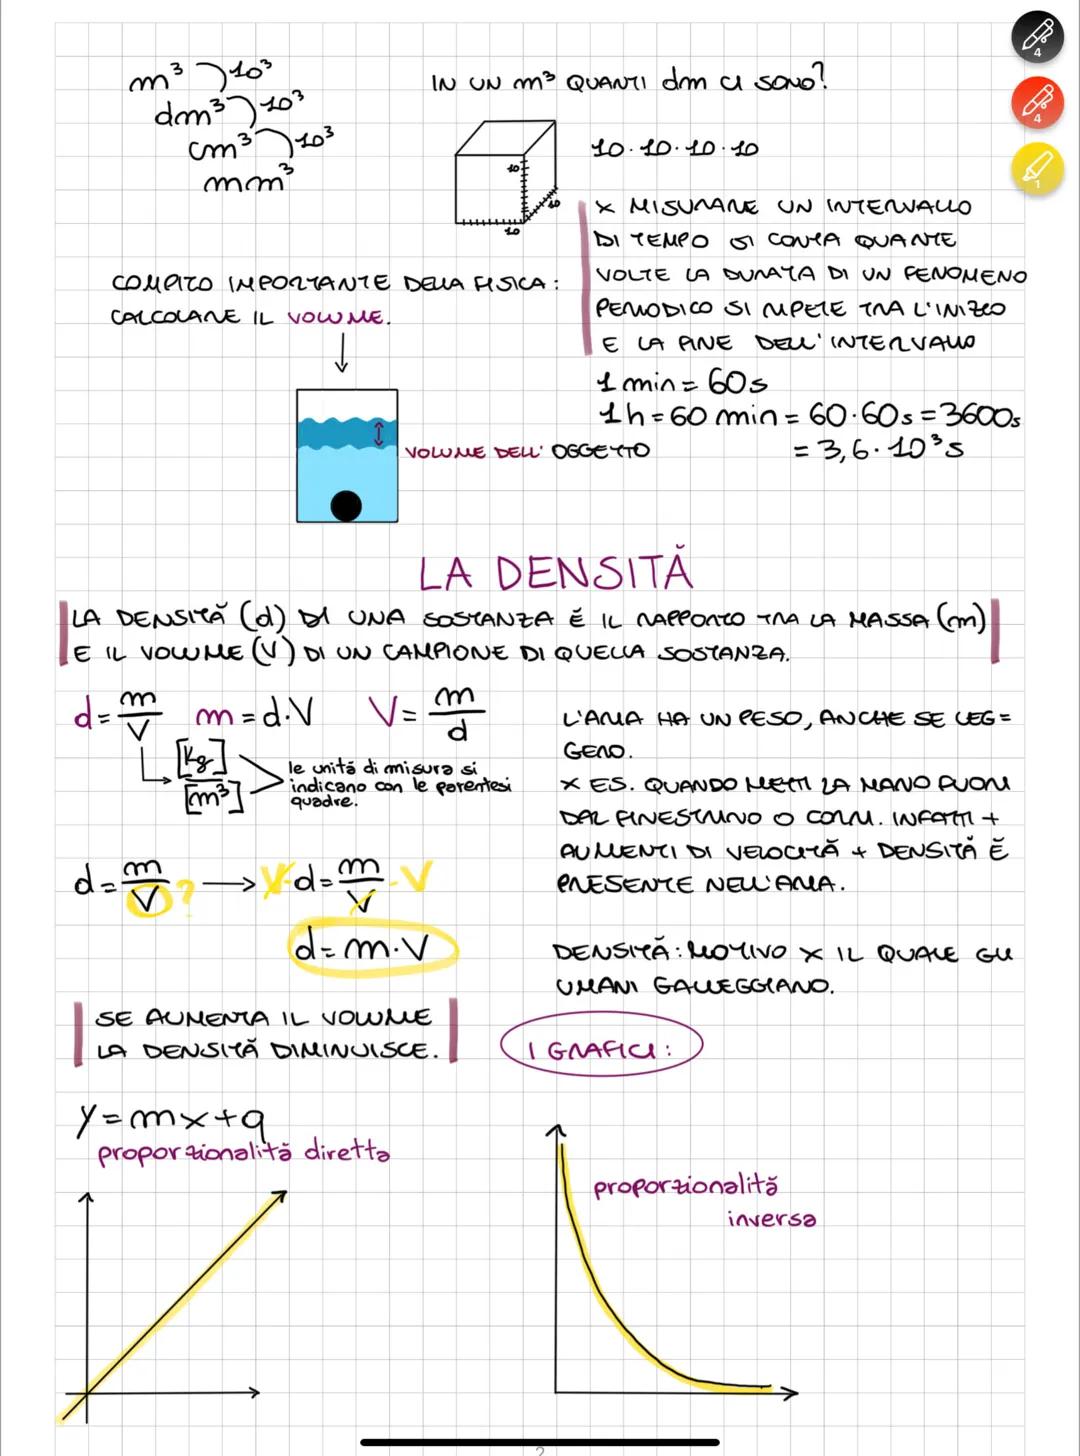 m³ ) 10³
dm³ ) 10³
cm³ ) 10³
mm³
IN UN m³ QUANTI dm CI SONO?
10
10
10
10·10·10·10
X MISURARE UN INTERVALLO
DI TEMPO SI CONTA QUANTE
VOLTE LA DURATA DI UN FENOMENO
PERIODICO SI RIPETE TRA L'INIZIO
E LA FINE DELL'INTERVALLO
1 min = 60s
1h = 60 min = 60·60s = 3600s
= 3,6·10³s
COMPITO IMPORTANTE DELLA FISICA:
CALCOLARE IL VOLUME.
VOLUME DELL'OGGETTO
LA DENSITÀ
LA DENSITÀ (d) DI UNA SOSTANZA È IL RAPPORTO TRA LA MASSA (m)
E IL VOLUME (V) DI UN CAMPIONE DI QUELLA SOSTANZA.
d = m/V m = d·V V = m/d
[kg]/[m³]
le unità di misura si
indicano con le parentesi
quadre.
d = m/V ? → V·d = m/V · V
d = m·V
SE AUMENTA IL VOLUME
LA DENSITÀ DIMINUISCE.
L'ARIA HA UN PESO, ANCHE SE LEG=
GERO.
X ES. QUANDO METTI LA MANO FUORI
DAL FINESTRINO O CORRI. INFATTI +
AUMENTI DI VELOCITÀ + DENSITÀ È
PRESENTE NELL'ARIA.
DENSITÀ: MOTIVO X IL QUALE GLI
UMANI GALLEGGIANO.
I GRAFICI:
y = mx + q
proporzionalità diretta
proporzionalità
inversa
4
4
1
2